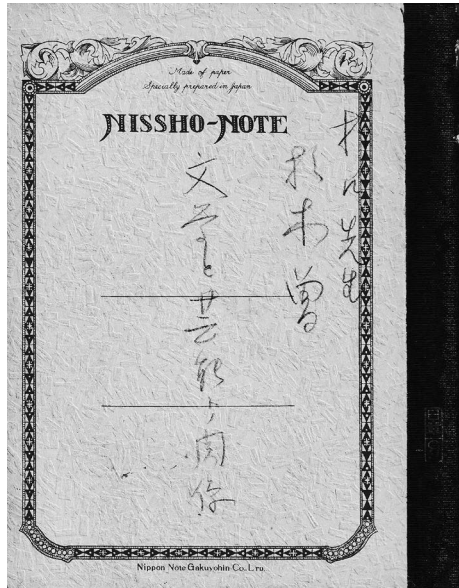 Made of paper
Specially prepared in Japan
NISSHO-NOTE
折口先生
文学と芸能ノ関係
Nippon Note Gakuyohin Co. Ltd.